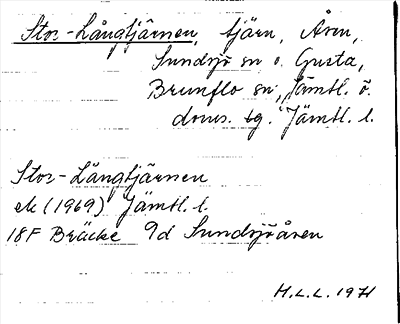 Stor-Långtjärnen, tjärn, Åsen,
Sundsjö sn o. Grusta,
Brunflo sn, Jämtl. ö.
doms. tg. Jämtl. l.
Stor-Långtjärnen
ek (1969) Jämtl. l.
18F Bräcke 9d Sundsjöåsen
H.L.L. 1971